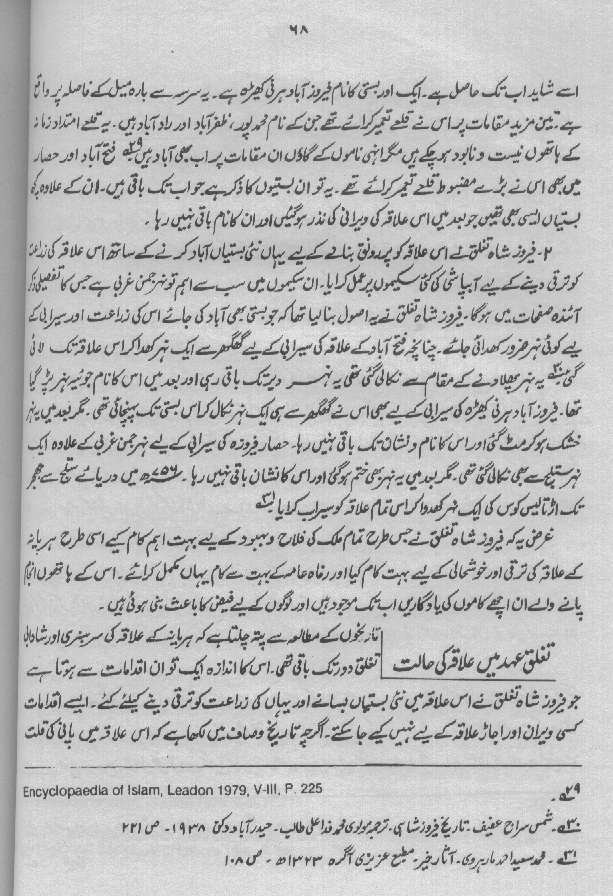 ۶۸
اسے شاید اب تک حاصل ہے۔ ایک اور بستی کا نام فیروز آباد ہرنی کھیڑہ ہے۔ یہ سرسہ سے بارہ میل کے فاصلہ پر واقع
ہے۔ تین مزید مقامات پر اس نے قلعے تعمیر کرائے تھے جن کے نام محمد پور، ظفر آباد اور راد آباد ہیں۔ یہ قلعے امتداد زمانہ
کے ہاتھوں نیست و نابود ہو چکے ہیں مگر انہی ناموں کے گاؤں ان مقامات پر اب بھی آباد ہیں ۲۹؎ فتح آباد اور حصار
میں بھی اس نے بڑے مضبوط قلعے تعمیر کرائے تھے۔ یہ تو ان بستیوں کا ذکر ہے جو اب تک باقی ہیں۔ ان کے علاوہ کچھ
بستیاں ایسی بھی تھیں جو بعد میں اس علاقہ کی ویرانی کی نذر ہوگئیں اور ان کا نام باقی نہیں رہا۔
۲۔ فیروز شاہ تغلق نے اس علاقہ کو پر رونق بنانے کے لیے یہاں نئی بستیاں آباد کرنے کے ساتھ اس علاقہ کی زراعت
کو ترقی دینے کے لیے آبپاشی کی کئی سکیموں پر عمل کرایا۔ ان سکیموں میں سب سے اہم تو نہر جمن غربی ہے جس کا تفصیلی ذکر
آئندہ صفحات میں ہوگا۔ فیروز شاہ تغلق نے یہ اصول بنا لیا تھا کہ جو بستی بھی آباد کی جائے اس کی زراعت اور سیرابی کے
لیے کوئی نہر ضرور کھدائی جائے۔ چنانچہ فتح آباد کے علاقہ کی سیرابی کے لیے گھگھر سے ایک نہر کھدا کر اس علاقہ تک لائی
گئی ۳۰؎ یہ نہر پھلاد نے کے مقام سے نکالی گئی تھی یہ نہر دیر تک باقی رہی اور بعد میں اس کا نام جوئیہ نہر پڑ گیا
تھا۔ فیروز آباد ہرنی کھیڑہ کی سیرابی کے لیے بھی اس نے گھگھر سے ہی ایک نہر نکال کر اس بستی تک پہنچائی تھی۔ مگر بعد میں یہ نہر
خشک ہو کر مٹ گئی اور اس کا نام و نشان تک باقی نہیں رہا۔ حصار فیروزہ کی سیرابی کے لیے نہر جمن غربی کے علاوہ ایک
نہر ستلج سے بھی نکالی گئی تھی۔ مگر بعد میں یہ نہر بھی ختم ہوگئی اور اس کا نشان باقی نہیں رہا۔ ۷۵۶ھ میں دریائے ستلج سے جھجر
تک اڑتالیس کوس کی ایک نہر کھدوا کر اس تمام علاقہ کو سیراب کرایا ۳۱؎
غرض یہ کہ فیروز شاہ تغلق نے جس طرح تمام ملک کی فلاح و بہبود کے لیے بہت اہم کام کیے اسی طرح ہریانہ
کے علاقہ کی ترقی اور خوشحالی کے لیے بہت کام کیا اور رفاہ عامہ کے بہت سے کام یہاں مکمل کرائے۔ اس کے ہاتھوں انجام
پانے والے ان اچھے کاموں کی یادگاریں اب تک موجود ہیں اور لوگوں کے لیے فیض کا باعث بنی ہوئی ہیں۔
تاریخوں کے مطالعہ سے پتہ چلتا ہے کہ ہریانہ کے علاقہ کی سرسبزی اور شادابی
تغلق عہد میں علاقہ کی حالت
تغلق دور تک باقی تھی۔ اس کا اندازہ ایک تو ان اقدامات سے ہوتا ہے
جو فیروز شاہ تغلق نے اس علاقہ میں نئی بستیاں بسانے اور یہاں کی زراعت کو ترقی دینے کیلئے کئے۔ ایسے اقدامات
کسی ویران اور اجاڑ علاقہ کے لیے نہیں کیے جا سکتے۔ اگرچہ تاریخ وصاف میں لکھا ہے کہ اس علاقہ میں پانی کی قلت
۲۹؎ Encyclopaedia of Islam, Leadon 1979, V-III, P. 225
۳۰؎۔ شمس سراج عفیف۔ تاریخ فیروز شاہی۔ ترجمہ مولوی محمد فدا علی طالب۔ حیدر آباد دکن ۱۹۳۸۔ ص ۲۲۱
۳۱؎۔ محمد سعید احمد مارہروی۔ آثار خیر۔ مطبع عزیزی آگرہ ۱۳۲۳ھ۔ ص ۱۰۸